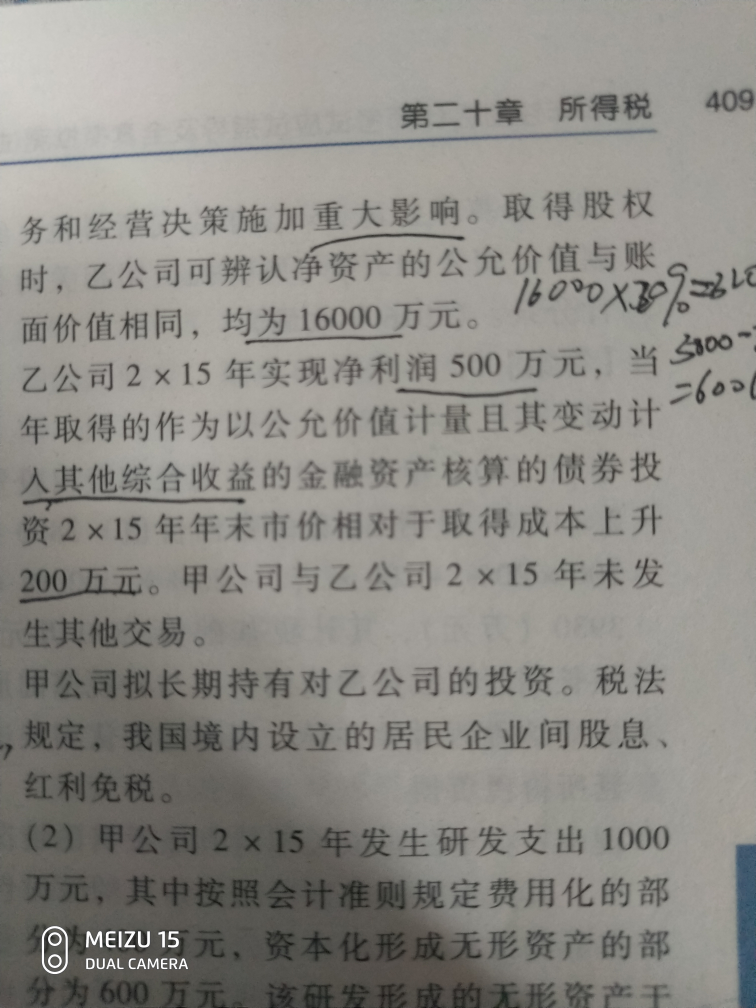 第二十章 所得税 409
务和经营决策施加重大影响。取得股权
时，乙公司可辨认净资产的公允价值与账
面价值相同，均为16000万元。
16000×30%=
乙公司2×15年实现净利润500万元，当
年取得的作为以公允价值计量且其变动计
入其他综合收益的金融资产核算的债券投
资2×15年年末市价相对于取得成本上升
200万元。甲公司与乙公司2×15年未发
生其他交易。
甲公司拟长期持有对乙公司的投资。税法
规定，我国境内设立的居民企业间股息、
红利免税。
(2)甲公司2×15年发生研发支出1000
万元，其中按照会计准则规定费用化的部
万元，资本化形成无形资产的部
分为600万元。该研发形成的无形资产于
MEIZU 15
DUAL CAMERA